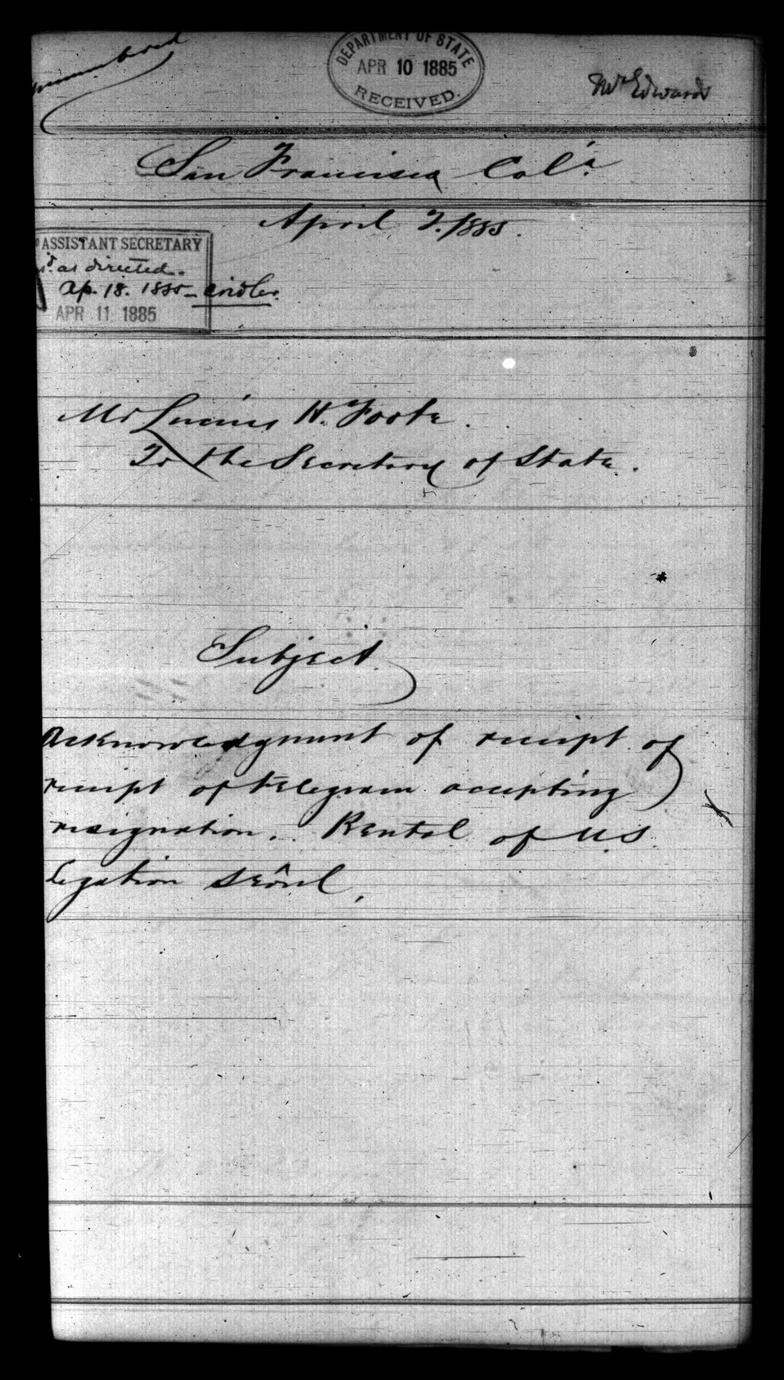 DEPARTMENT OF STATE
APR 10 1885
RECEIVED.
Mr Edwards
San Francisco Cal'a
April 2. 1885.
ASSISTANT SECRETARY
as directed.
Ap. 18. 1885
APR 11 1885
Mr Lucius H. Foote.
To the Secretary of State.
Subject
Acknowledgment of receipt of
receipt of telegram accepting
resignation. Rental of U.S.
Legation Seôul.